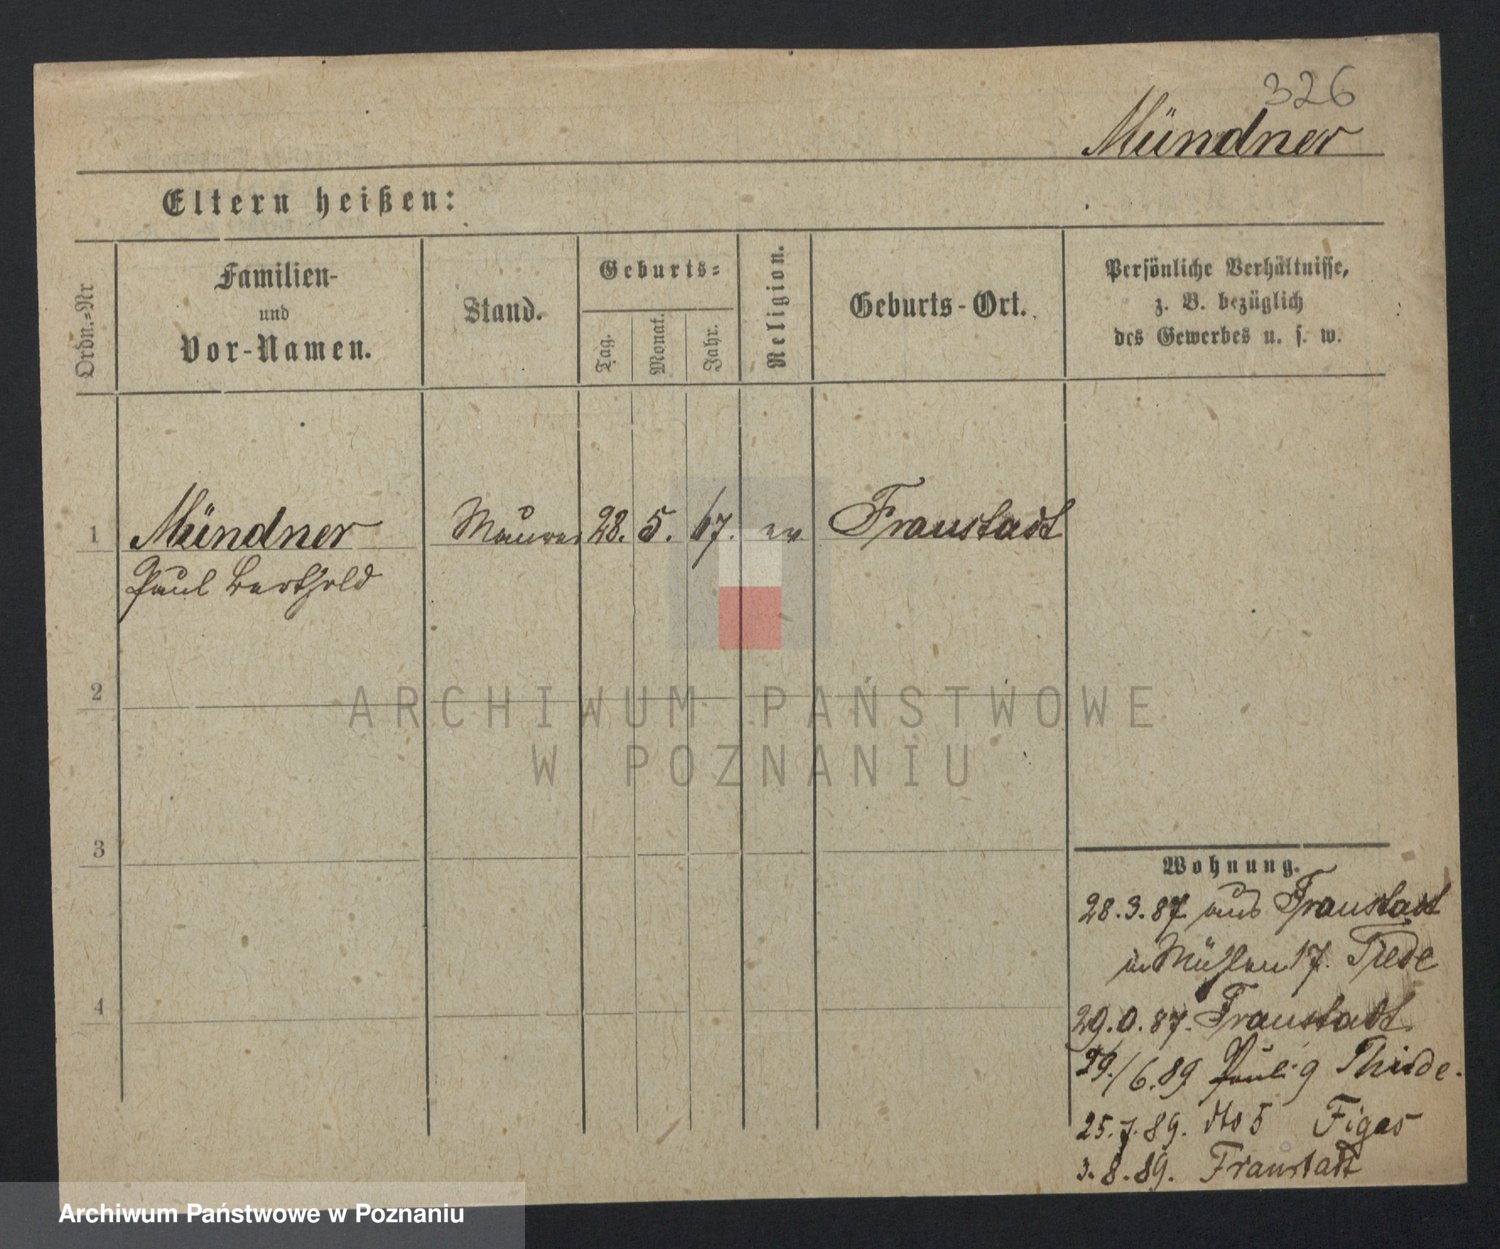 326
Mündner
Eltern heißen:
Ordn.-Nr
Familien-
und
Vor-Namen.
Stand.
Geburts-
Tag.
Monat.
Jahr.
Religion.
Geburts-Ort.
Persönliche Verhältnisse,
z. B. bezüglich
des Gewerbes u. s. w.
1 Mündner Maurer 28. 5. 67. ev Fraustadt
Paul Berthold
2
3
4
Wohnung.
28.3.87 aus Fraustadt
in Mühlen 17. Tiede
29.9.87. Fraustadt
29/6.89 Pauli 9 Thiede.
25.7.89. dto 5 Figas
3.8.89. Fraustadt
ARCHIWUM PAŃSTWOWE
W POZNANIU
Archiwum Państwowe w Poznaniu